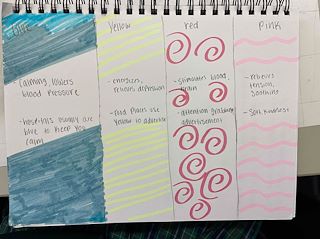 Blue
- Calming, lowers
blood pressure
- Hospitals usually are
blue to keep you
calm
Yellow
- energizes,
relieves depression
- Food places use
yellow to advertise
red
- Stimulates blood,
brain
- attention grabbing
advertisement
Pink
- relieves
tension,
soothing
- Soft kindness